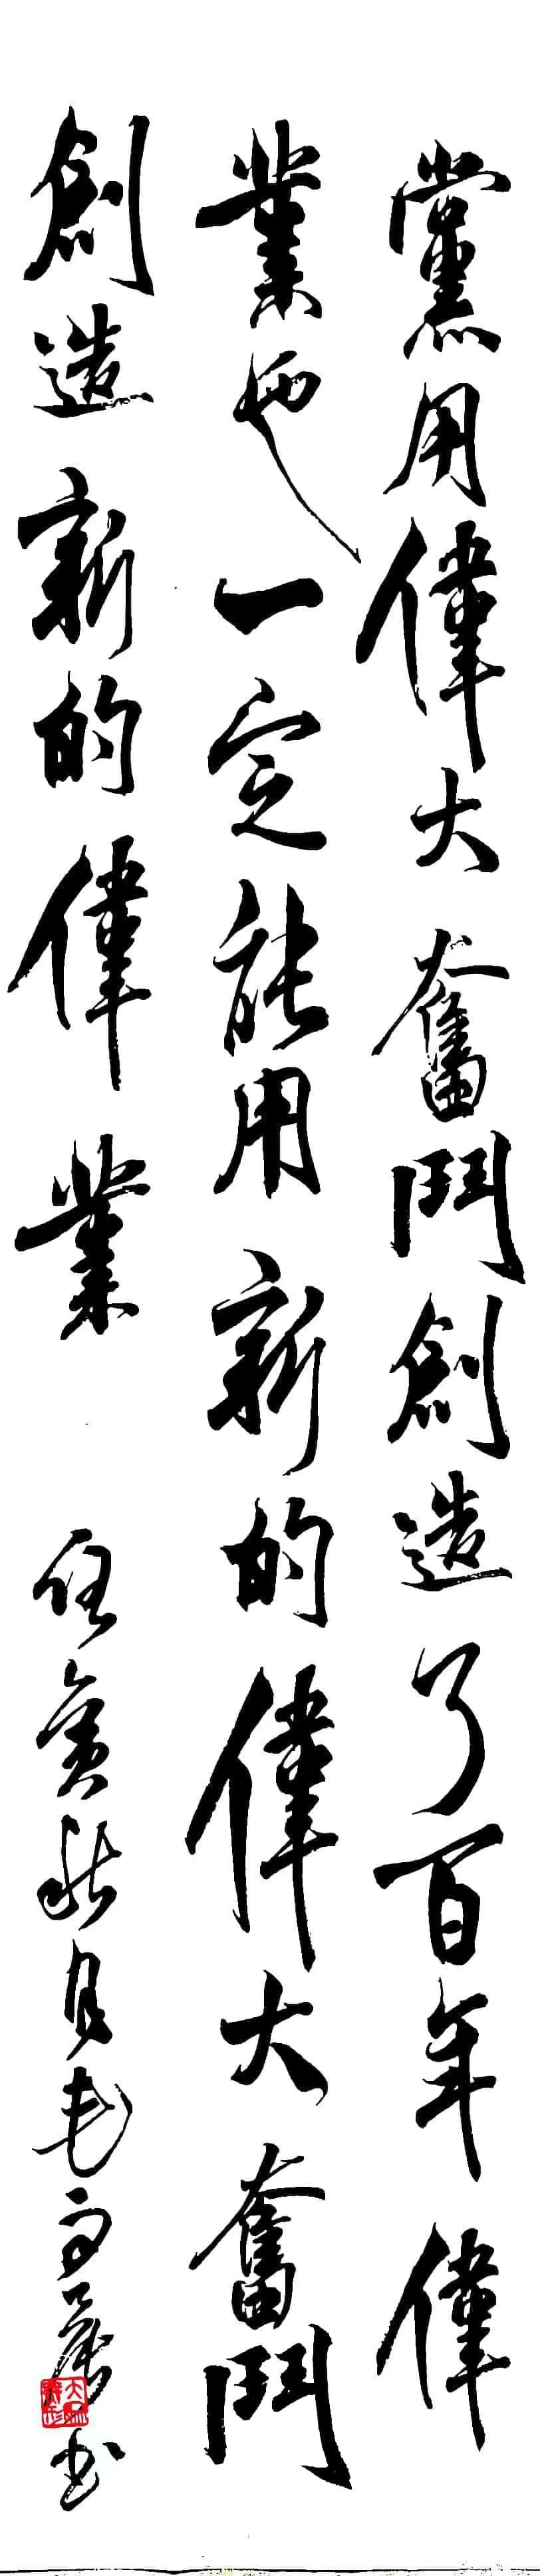 黨用偉大奮鬥創造了百年偉
業也一定能用新的偉大奮鬥
創造新的偉業
秋月毛
书